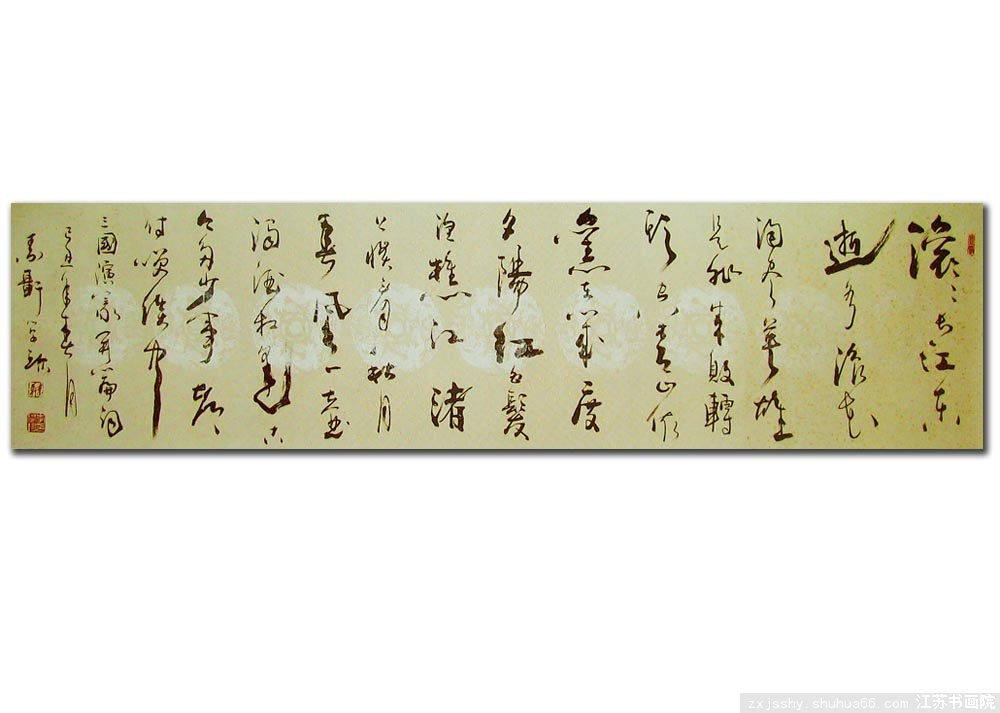 滚〻長江東
逝水浪花
淘尽英雄
是非成敗轉
頭空青山依
舊在几度
夕陽红白髮
漁樵江渚
上慣看秋月
春風一壺
濁酒相逢古
今多少事都
付笑談中
三國演義開篇詞
己丑年春月
zxjsshy.shuhua66.com 江苏书画院